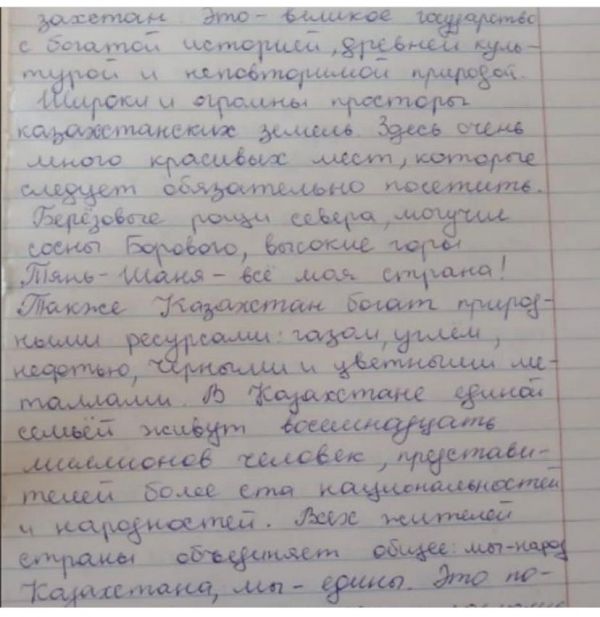 захстан. Это - великое государство
с богатой историей, древней куль-
турой и неповторимой природой.
Широки и огромны просторы
казахстанских земель. Здесь очень
много красивых мест, которые
следует обязательно посетить.
Берёзовые рощи севера, могучие
сосны Борового, высокие горы
Тянь-Шаня - всё моя страна!
Также Казахстан богат природ-
ными ресурсами: газом, углём,
нефтью, чёрными и цветными ме-
таллами. В Казахстане единой
семьёй живут восемнадцать
миллионов человек, представи-
телей более ста национальностей
и народностей. Всех жителей
страны объединяет общее: мы-народ
Казахстана, мы - едины. Это по-